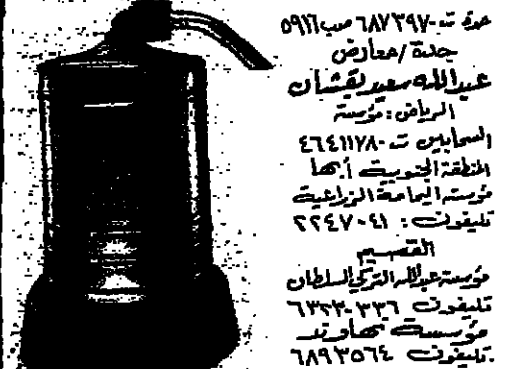 جدة ت-٦٨٧٣٩٧ صب ٥٩١٦
جدة /معارض
عبدالله سعيد بقشان
الرياض: مؤسسة
السحابين ت-٤٦٤١١٧٨
المنطقة الجنوبية أبها
مؤسسة اليمامة الزراعية
تليفون: ٢٢٤٧٠٤١
القصيم
مؤسسة عبدالله التركي السلطان
تليفون ٣٣٦-٦٣٢٣
مؤسسة
تليفون ٦٨٩٣٥٦٤